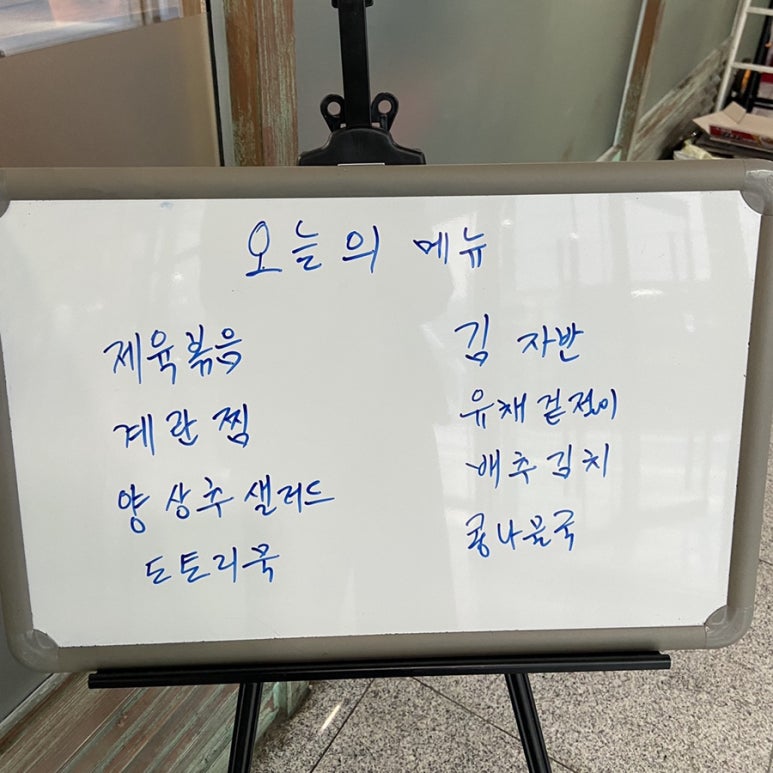 오늘의 메뉴
제육볶음
계란찜
양상추샐러드
도토리묵
김 자반
유채겉절이
배추김치
콩나물국